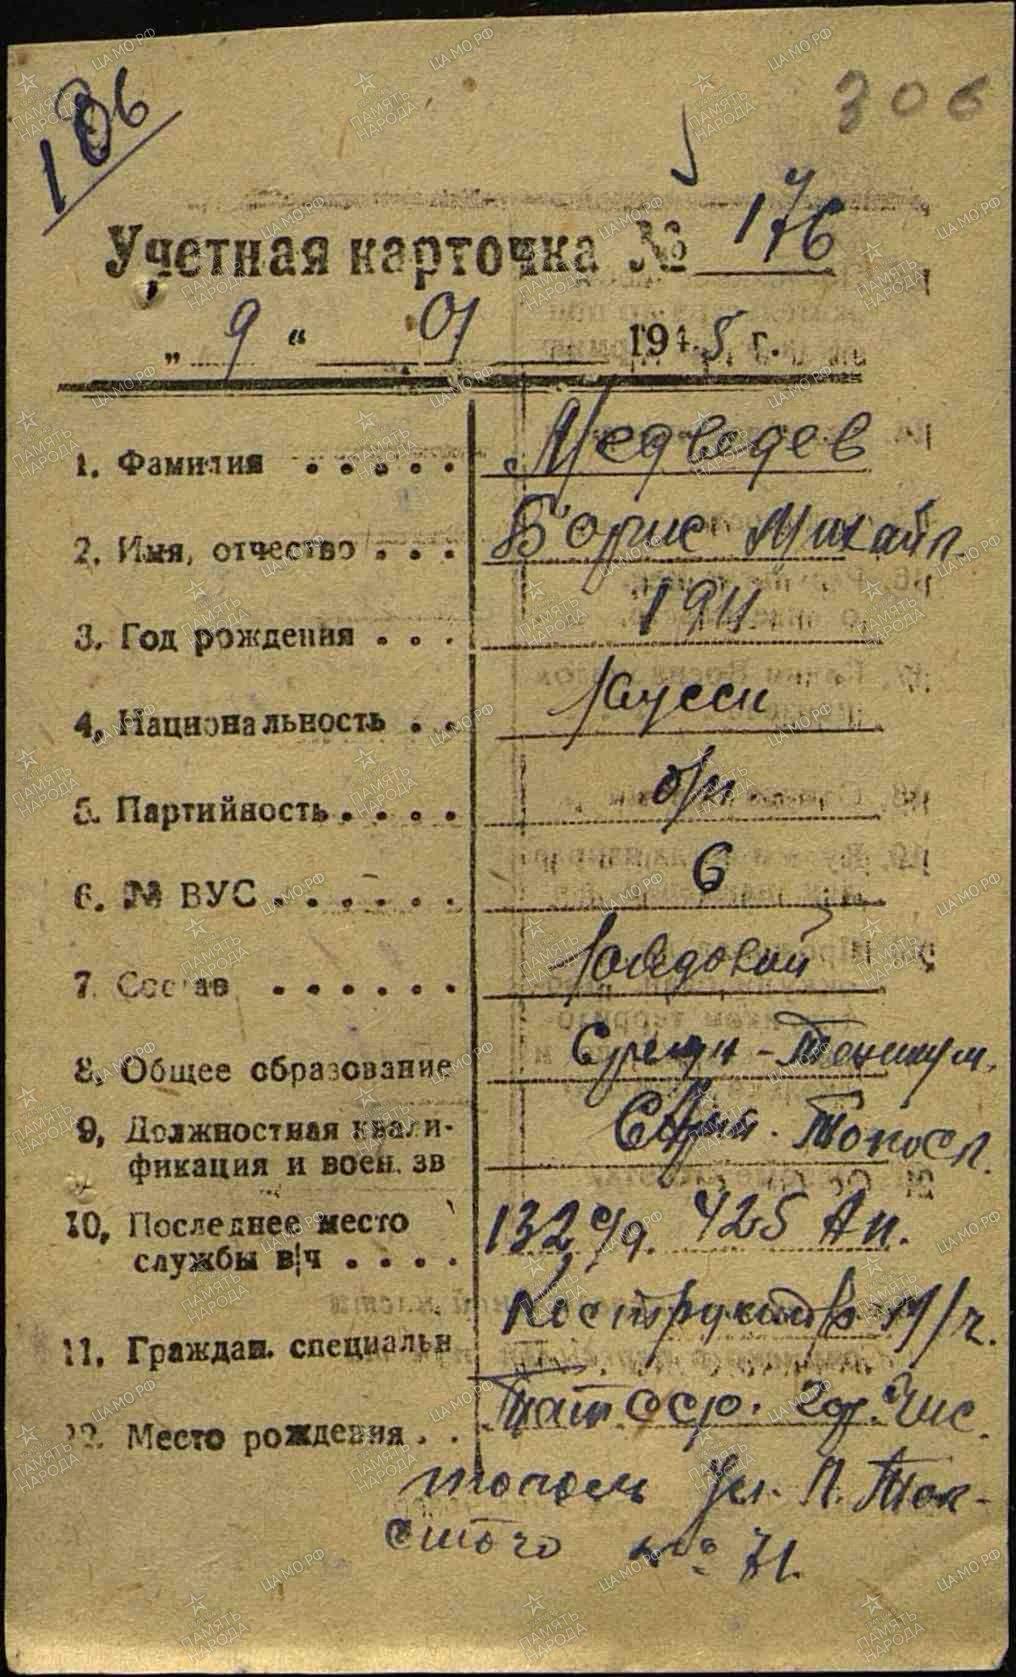 186
306
Учетная карточка № 176
„ 9 “ 01 1945 г.
1. Фамилия . . . . . Медведев
2. Имя, отчество . . . Борис Михайл.
3. Год рождения . . . 1911
4. Национальность . . Русск
5. Партийность . . . . б/п
6. № ВУС . . . . . . 6
7. Состав . . . . . . Рядовой
8. Общее образование Средн - Техникум.
9, Должностная квали-
фикация и воен. зв Топосл.
10, Последнее место
службы в/ч . . . . 132 с/д. 425 Ап.
11. Граждан. специальн
12. Место рождения . . Тат ССр. гор. Чис
тополь ул. Л. Тол-
стого № 71.